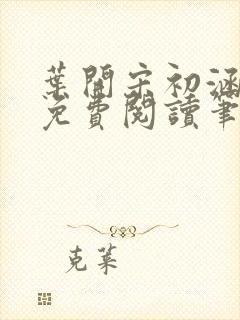 葉開宋初涵
免費閱讀筆
克萊